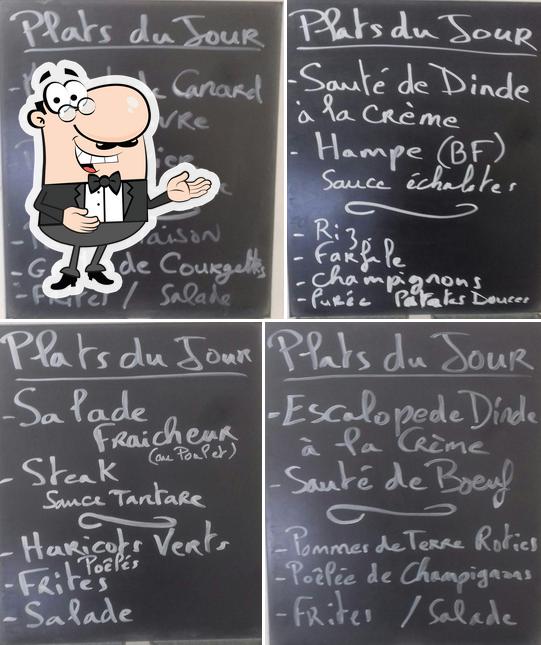 Plats du Jour
de Canard
de Courgettes
Frites / Salade
Plats du Jour
- Sauté de Dinde
à la Crème
- Hampe (BF)
Sauce échalotes
- Riz
- Farfalle
- champignons
- Purée Patates Douces
Plats du Jour
- Salade
Fraicheur
(au Poulet)
- Steak
Sauce Tartare
- Haricots Verts
Poêlés
- Frites
- Salade
Plats du Jour
- Escalope de Dinde
à la Crème
- Sauté de Boeuf
- Pommes de Terre Roties
- Poêlée de Champignons
- Frites / Salade